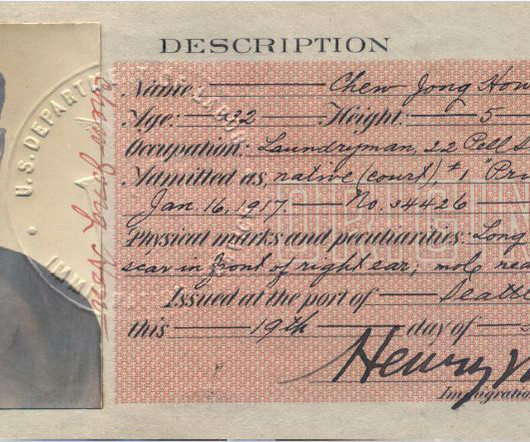 DESCRIPTION
Name: Chew Jong How
Age: 32 Height: 5
Occupation: Laundryman, 22 Pell S
Admitted as native (court), #1 "Pri
Jan. 16, 1917. No. 34426
Physical marks and peculiarities: Long
scar in front of right ear; mole nec
Issued at the port of Seatt
this 19th day of
Henry
Immigration
U.S. DEPARTM
LABOR
IMM
ORIGINAL